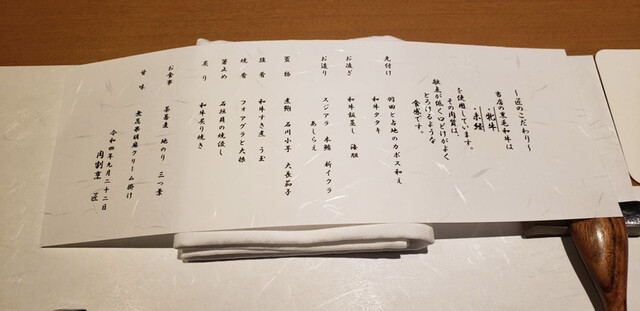 ～匠のこだわり～
当店の黒毛和牛は
・牝牛
・未経産
を使用しています。
その肉質は、
融点が低く口どけがよく
とろけるような
食感です。
先付け
和牛タタキ 羽田と各地のカボス和え
お凌ぎ
和牛飯蒸し 海胆
お造り
スジアラ 本鮪 新イクラ
あしらえ
蓋物
煮鮑 石川小芋 大長茄子
強肴
和牛すき煮 う玉
焼肴
フォアグラと大根
箸止め
石垣貝の焼浸し
炙り
和牛炙り焼き
お食事
茶蕎麦 地のり 三つ葉
甘味
無花果胡麻クリーム掛け
令和四年九月二十二日
肉割烹 匠